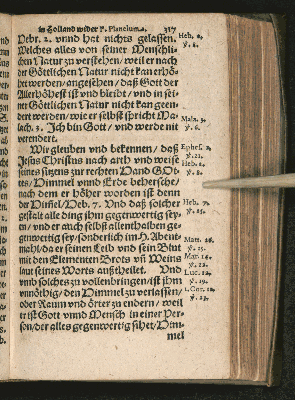 in Holland wider P. Plancium. 317
Hebr. 2. vnnd hat nichts gelassen.
Heb. 2.
℣. 8.
Welches alles von seiner Menschli-
chen Natur zu verstehen/ weil er nach
der Göttlichen Natur nicht kan erhö-
het werden/ angesehen/ daß Gott der
Allerhöhest ist vnd bleibt/ vnd in sei-
ner Göttlichen Natur nicht kan geen-
dert werden/ wie er selbst spricht Ma-
lach. 3. Ich bin Gott/ vnd werde nit
Mala. 3.
℣. 6.
verendert.
Wir gleuben vnd bekennen/ daß
Ephes. 1.
℣. 21.
Jesus Christus nach arth vnd weise
Heb. 1.
seines sitzens zur rechten Hand GOt-
℣. 8.
tes/ Himmel vnnd Erde beherschet/
nach dem er höher worden ist denn
der Himel/ Heb. 7. Vnd daß solcher
Heb. 7.
gestalt alle ding ihm gegenwertig sey-
en/ vnd er auch selbst allenthalben ge-
genwertig sey/ sonderlich im H. Abent-
mahl/ da er seinen Leib vnd sein Blut
Matt. 26.
mit den Elementen Brots vñ Weins
Mar. 14.
℣. 22.
laut seines Worts außtheilet. Vnd
Luc. 22.
vmb solches zu vollenbringen/ ist ihm
℣. 19.
vnnöthig/ den Himmel zu verlassen/
1. Cor. 11.
oder Raum vnd örter zu endern/ weil
℣. 23.
er ist Gott vnnd Mensch in einer Per-
son/ der alles gegenwertig sihet/ Him-
mel